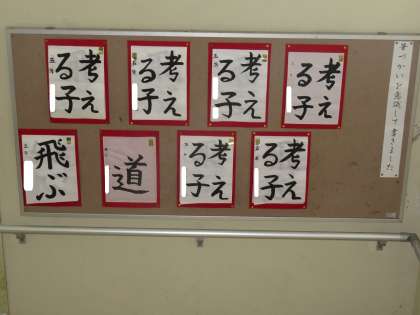 筆づかいを意識して書きました
考え
る子
考え
る子
考え
る子
考え
る子
考え
る子
考え
る子
道
飛ぶ